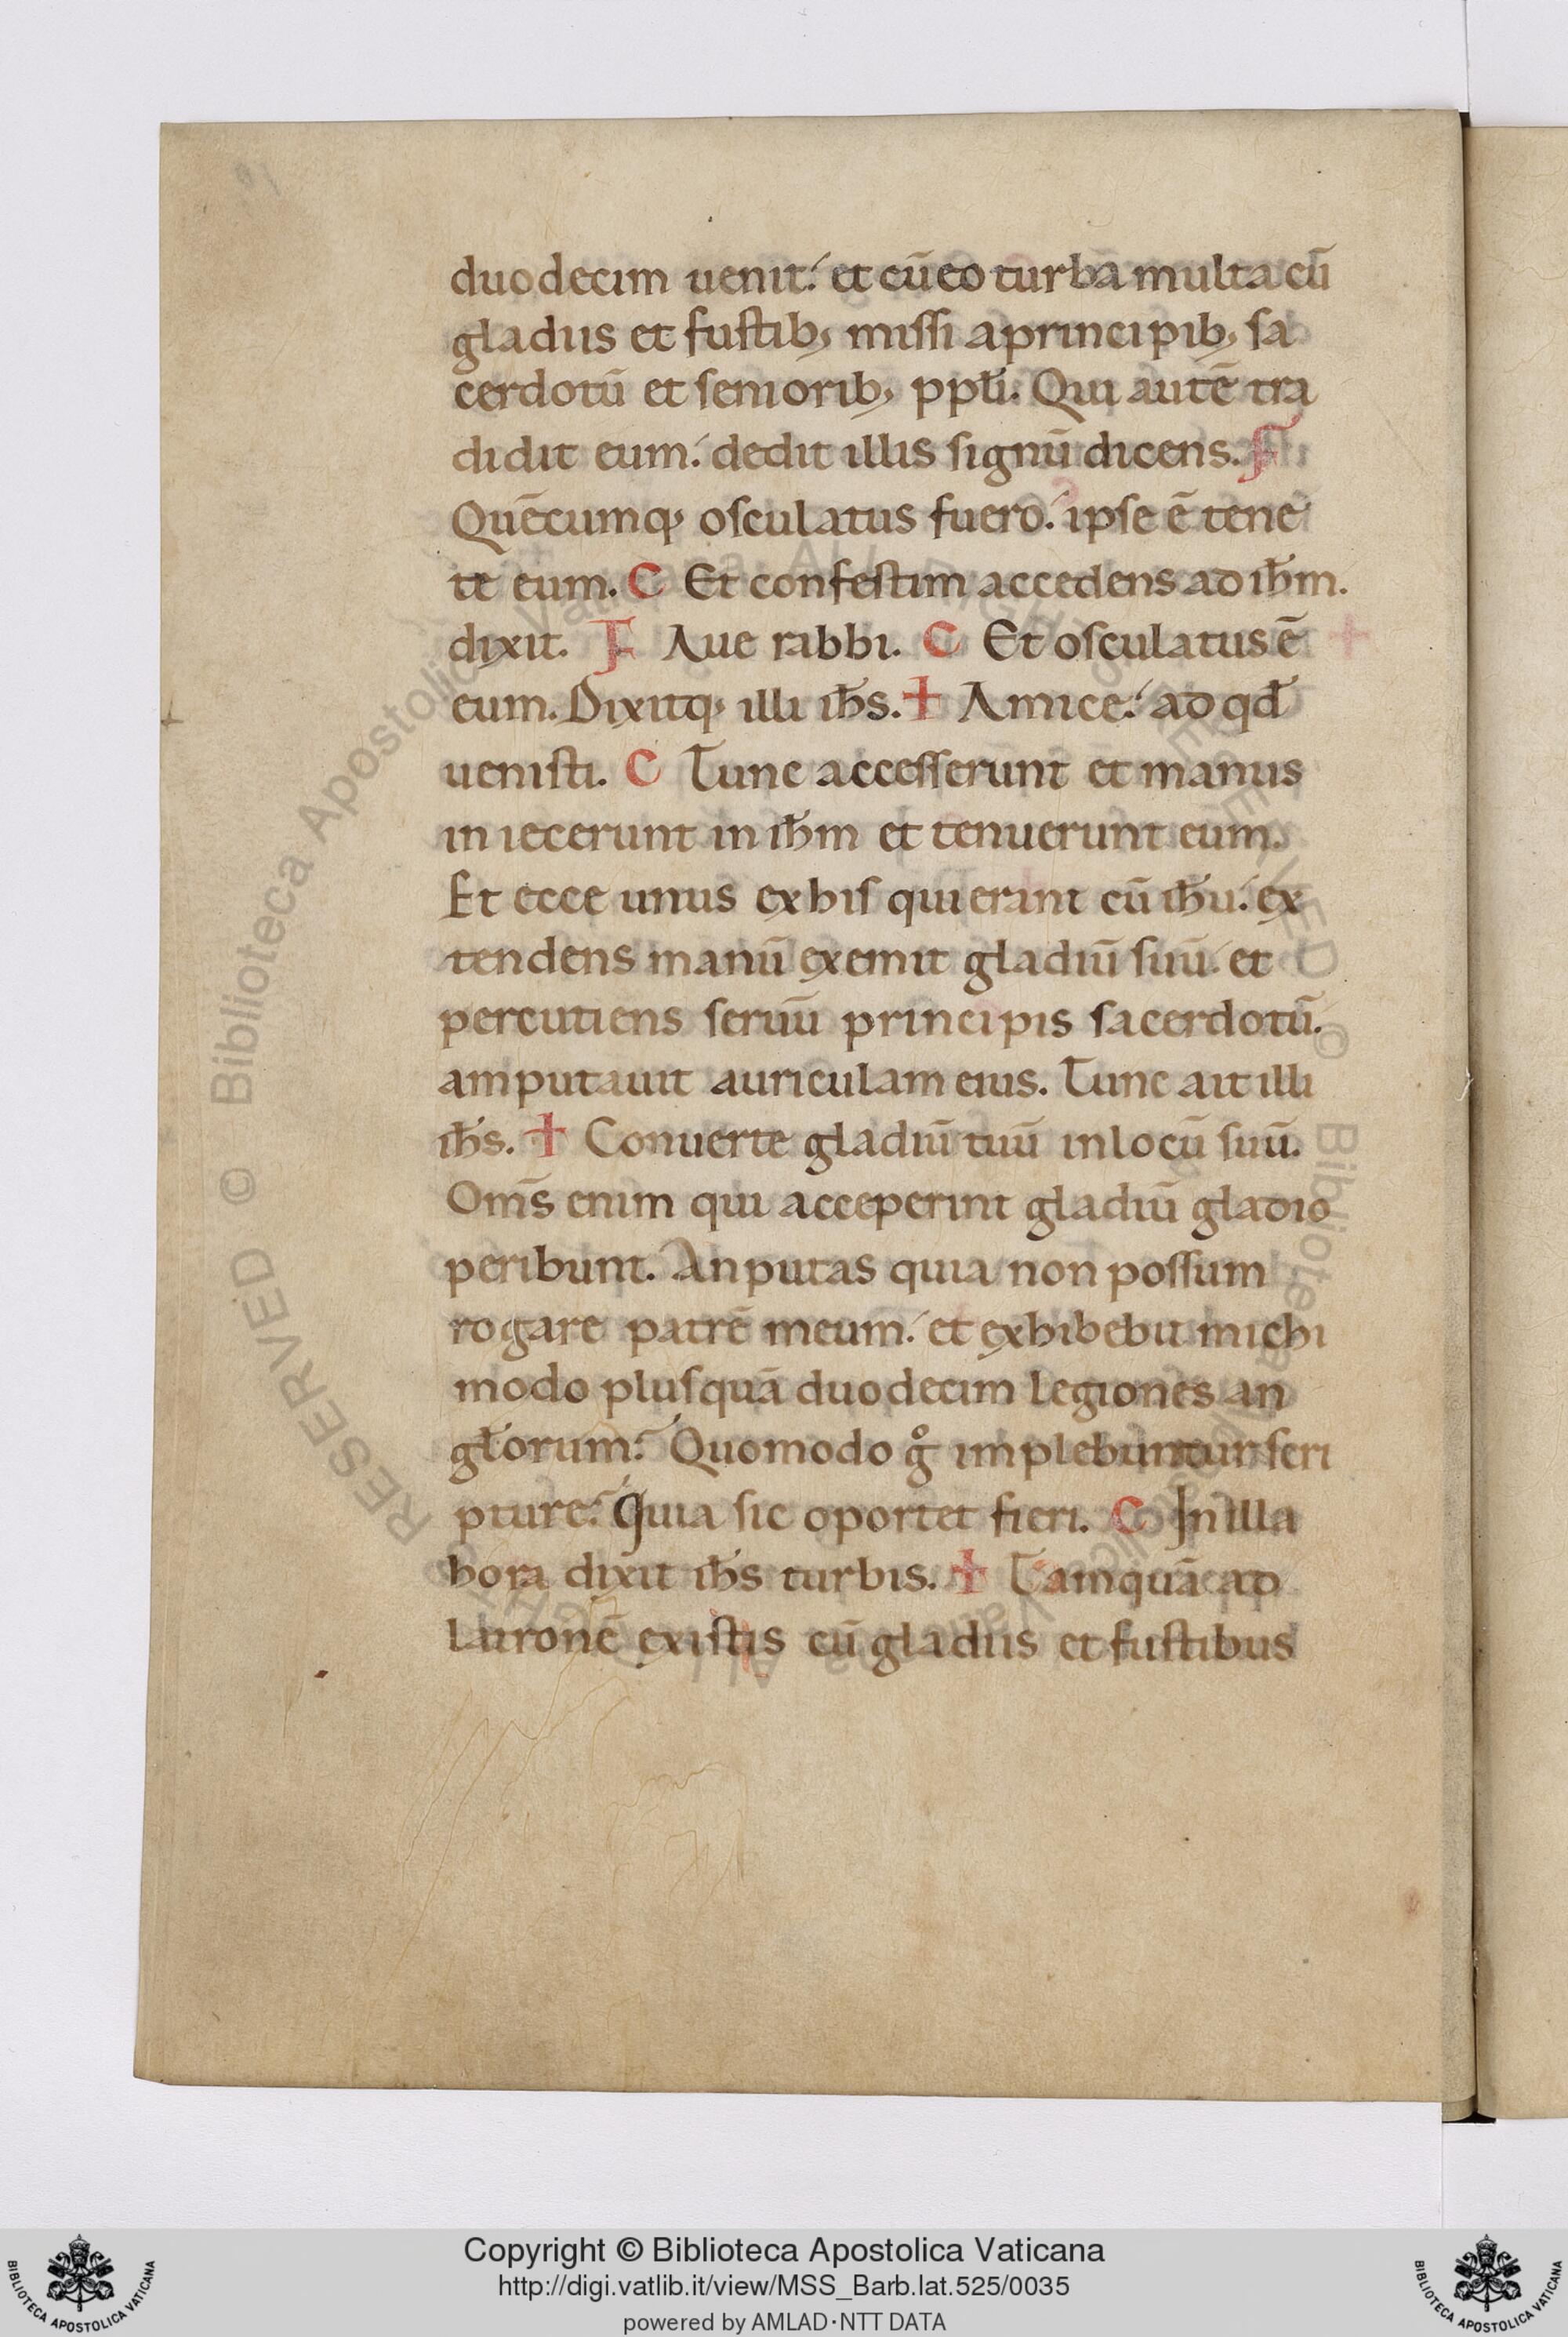 duodecim uenit. et cū eo turba multa cū
gladiis et fustib; missi a principib; sa
cerdotū et seniorib; ppl̄i. Qui autē tra
didit eum. dedit illis signū dicens. F
Quēcumq; osculatus fuero. ipse ē tene
te eum. C Et confestim accedens ad ih̄m.
dixit. F Aue rabbi. C Et osculatus ē
eum. Dixitq; illi ih̄s. + Amice. ad qd̄
uenisti. C Tunc accesserunt et manus
in iecerunt in ih̄m et tenuerunt eum.
Et ecce unus ex his qui erant cū ih̄u. ex
tendens manū exemit gladiū suū. et
percutiens seruū principis sacerdotū.
amputauit auriculam eius. Tunc ait illi
ih̄s. + Conuerte gladiū tuū in locū suū.
Om̄s enim qui acceperint gladiū gladio
peribunt. An putas quia non possum
rogare patrē meum. et exhibebit michi
modo plus quā duodecim legiones an
gl̄orum. Quomodo gͦ implebuntur scri
pture. Quia sic oportet fieri. C In illa
hora dixit ih̄s turbis. + Tamquā ad
latronē existis cū gladiis et fustibus
RESERVED © Biblioteca Apostolica Vaticana. ALL RIGHTS RESERVED © Biblioteca Apostolica Vaticana. ALL RIGHTS
Copyright © Biblioteca Apostolica Vaticana
http://digi.vatlib.it/view/MSS_Barb.lat.525/0035
powered by AMLAD·NTT DATA
BIBLIOTECA APOSTOLICA VATICANA
BIBLIOTECA APOSTOLICA VATICANA